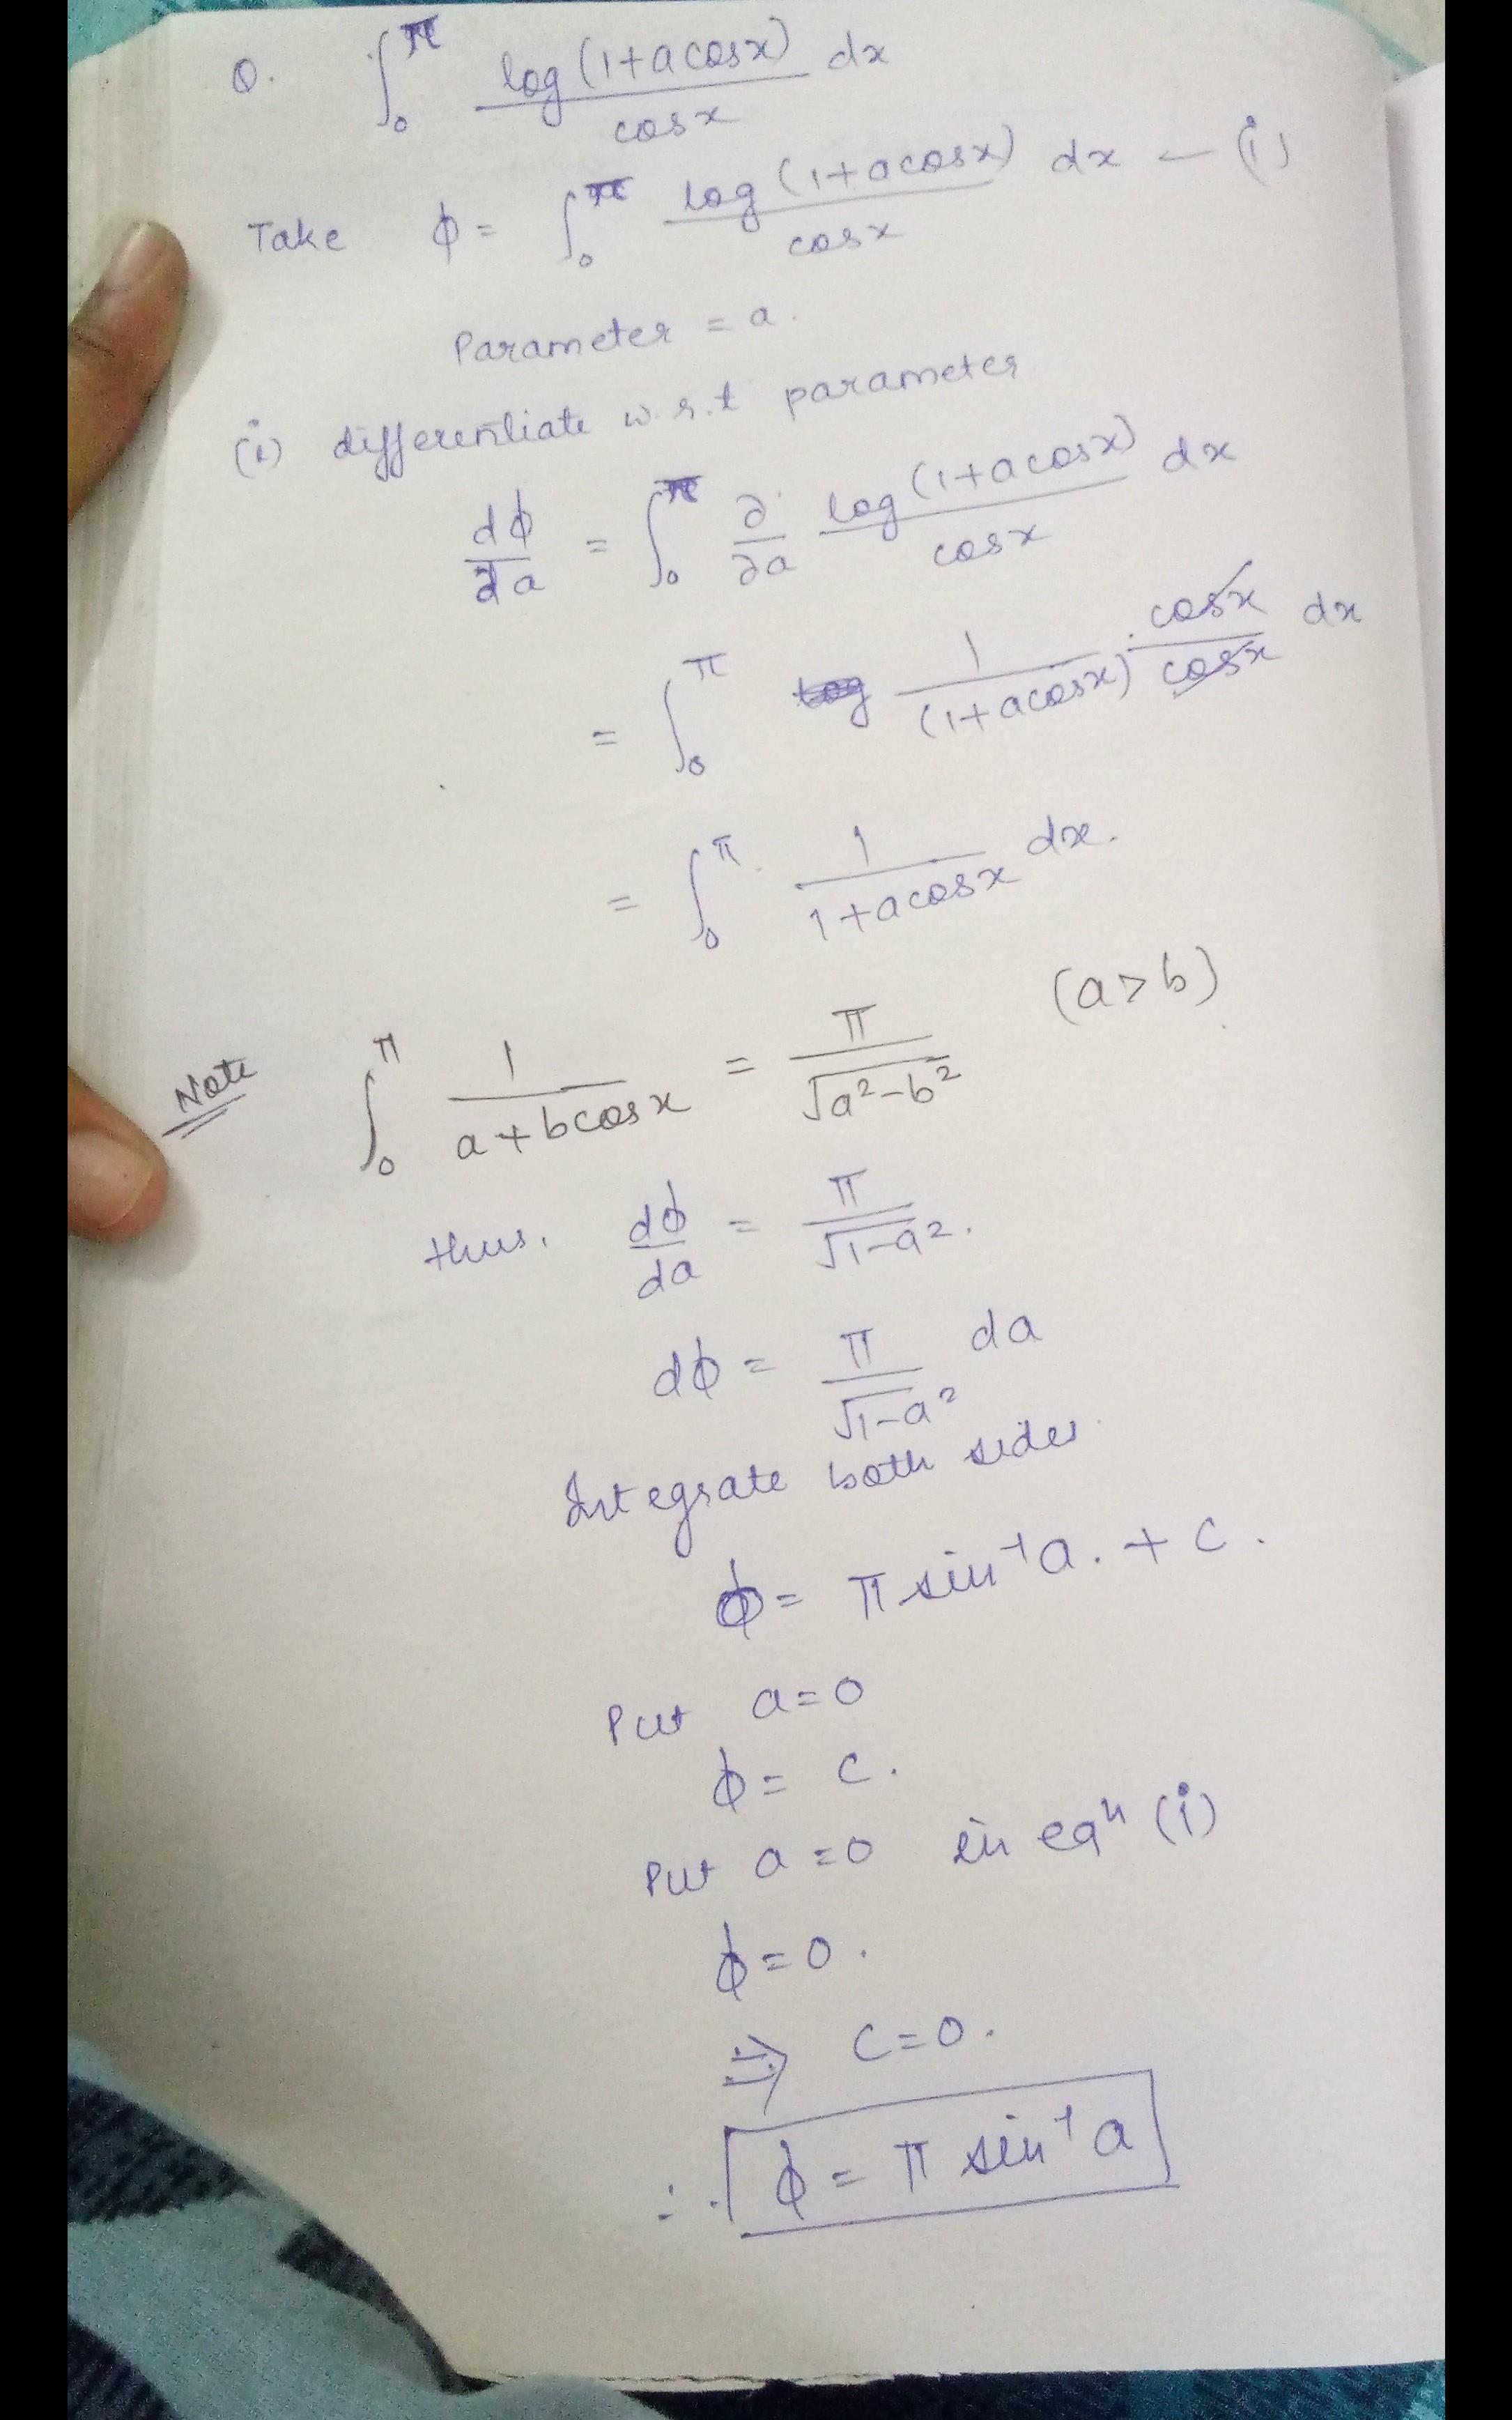 Q. ∫₀^π log(1+a cosx)/cosx dx
Take ϕ = ∫₀^π log(1+a cosx)/cosx dx — (i)
Parameter = a.
(i) differentiate w.r.t parameter
dϕ/da = ∫₀^π ∂/∂a log(1+a cosx)/cosx dx
= ∫₀^π 1/(1+a cosx) · cosx/cosx dx
= ∫₀^π 1/(1+a cosx) dx.
Note ∫₀^π 1/(a+b cosx) = π/√(a²-b²) (a>b)
thus, dϕ/da = π/√(1-a²).
dϕ = π/√(1-a²) da
Integrate both sides
ϕ = π sin⁻¹a. + c.
Put a=0
ϕ = c.
Put a=0 in eqⁿ (i)
ϕ=0.
⇒ c=0.
∴ ϕ = π sin⁻¹ a